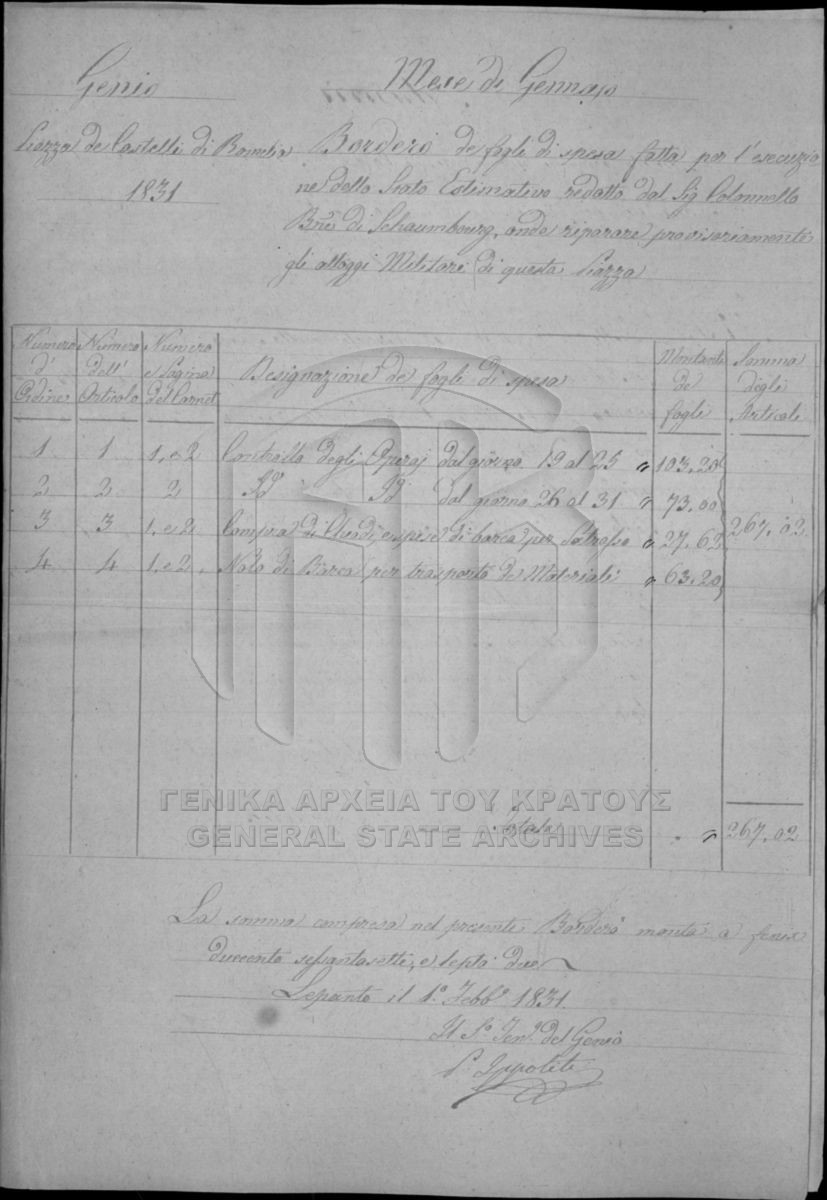 Genio
Mese di Gennajo
Piazza de Castelli di Romelia
1831
Borderò de fogli di spesa fatta per l'esecuzio
ne dello Stato Estimativo redatto dal Sig Colonnello
Bne di Schaumbourg, onde riparare provisoriamente
gli alloggi Militari di questa Piazza
Numero d' Ordine | Numero dell' Articolo | Numero e Pagina del Carnet | Designazione de fogli di spesa | Montante de fogli | Somma degli Articoli
1 1 1, e 2 Controllo degli Operaj dal giorno 19 al 25 " 103,20
2 2 2 Id Id dal giorno 26 al 31 " 73,00
3 3 1, e 2 Compra di Chiodi, di barca per " 27,62 267,02
4 4 1, e 2 Nolo di Barca per trasporto de Materiali " 63,20
Totale " 267,02
ΓΕΝΙΚΑ ΑΡΧΕΙΑ ΤΟΥ ΚΡΑΤΟΥΣ
GENERAL STATE ARCHIVES
La somma compresa nel presente Borderò monta a fenix
duecento sessantasette, e lepta due
Lepanto il 1º Febbº 1831
Il Sº Tenº del Genio
P. Ippoliti